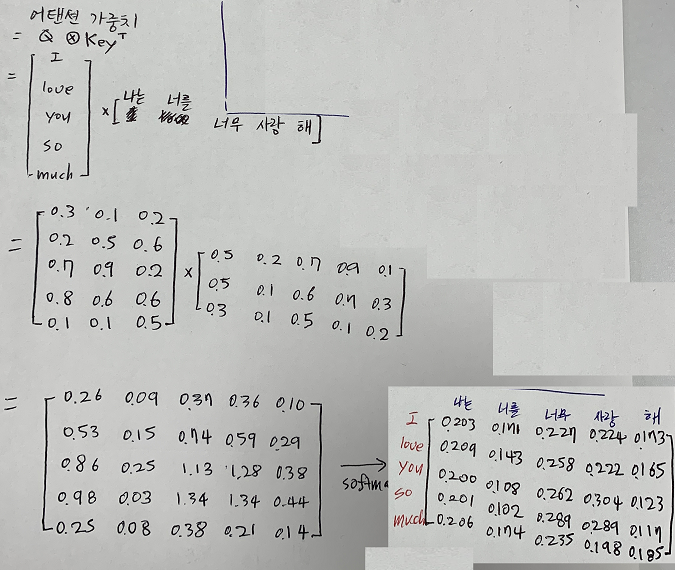 어탠션 가중치
= Q ⊗ Key^T
= [ I love you so much ] × [ 나는 너를 너무 사랑 해 ]
= [ 0.3 0.1 0.2
0.2 0.5 0.6
0.7 0.9 0.2
0.8 0.6 0.6
0.1 0.1 0.5 ]
× [ 0.5 0.2 0.7 0.9 0.1
0.5 0.1 0.6 0.7 0.3
0.3 0.1 0.5 0.1 0.2 ]
= [ 0.26 0.09 0.37 0.36 0.10
0.53 0.15 0.74 0.59 0.29
0.86 0.25 1.13 1.28 0.38
0.98 0.03 1.34 1.34 0.44
0.25 0.08 0.38 0.21 0.14 ]
→
나는 너를 너무 사랑 해
I 0.203 0.171 0.227 0.224 0.173
love 0.209 0.143 0.258 0.222 0.165
you 0.200 0.108 0.262 0.304 0.123
so 0.201 0.102 0.289 0.289 0.117
much 0.206 0.174 0.235 0.198 0.185